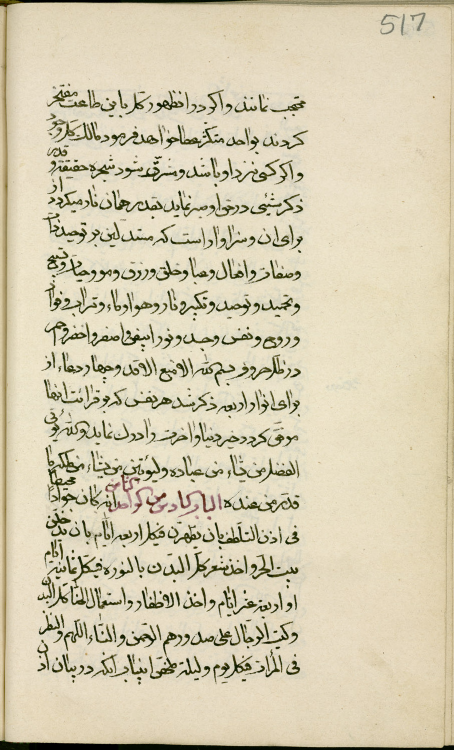 517
محتجب نمانند و اگر در ان ظهور كل باین طاعت مفتخر
كردند بواحد متكثر عطا خواهد فرمود مالك كل وجود
و اگر كسی نزد او باشد و مشرق شود شجره حقیقت و قدر
ذكر شیئی در حق او صبر نماید بقدر همان نار میكردد از
برای ان و سزاوار است كه
و صفات و افعال و عبادت و خلق و رزق و موت و حیات و تسبیح
و تحمید و توحید و تكبیر و نار و هوا و ماء و تراب و فؤاد
و روح و نفس و جسد و نور ابیض و اصفر و اخضر و احمر
در ظل حروف بسم الله الامنع الاقدس و چهار دعاء از
برای انوار اربعه ذكر شد هر نفس كه بقرائت انها
موفق كردد خیر دنیا و اخرت را درك نماید و الله یؤتی
الفضل من یشاء من عباده و لیؤتین من یشاء من ملكه ما
قدر من عنده انه كان جوادا محیطا الباب السادس من الواحد الثامن
فی اذن التلطف بان یطهرن فی كل اربعة ایام بان یدخلن
بیت الحر و اخذ شعر كل البدن بالنوره فی كل ثمانیة ایام
او اربعة عشر ایام و اخذ الاظفار و استعمال الحناء كل البدن
و كتب الرجال علی صدورهم الرحمن و النساء اللهم و النظر
فی المرات فی كل یوم و لیلة ملخص این باب آنكه در بیان اذن